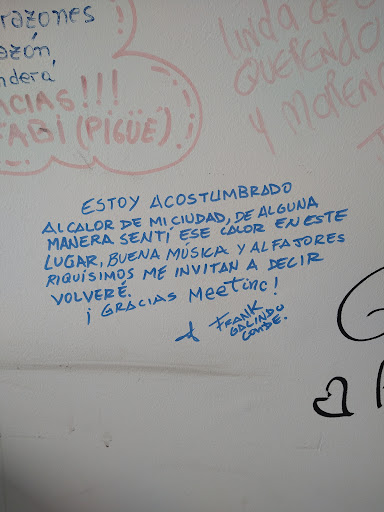 razones
azón,
ndera
ACIAS!!!
FABI (PIGÜE)
LINDA DE
QUERENDO
Y MORENO
ESTOY ACOSTUMBRADO
AL CALOR DE MI CIUDAD, DE ALGUNA
MANERA SENTÍ ESE CALOR EN ESTE
LUGAR, BUENA MÚSICA Y ALFAJORES
RIQUÍSIMOS ME INVITAN A DECIR
VOLVERÉ.
¡GRACIAS Meetinc!
FRANK
GALINDO
CONDE.